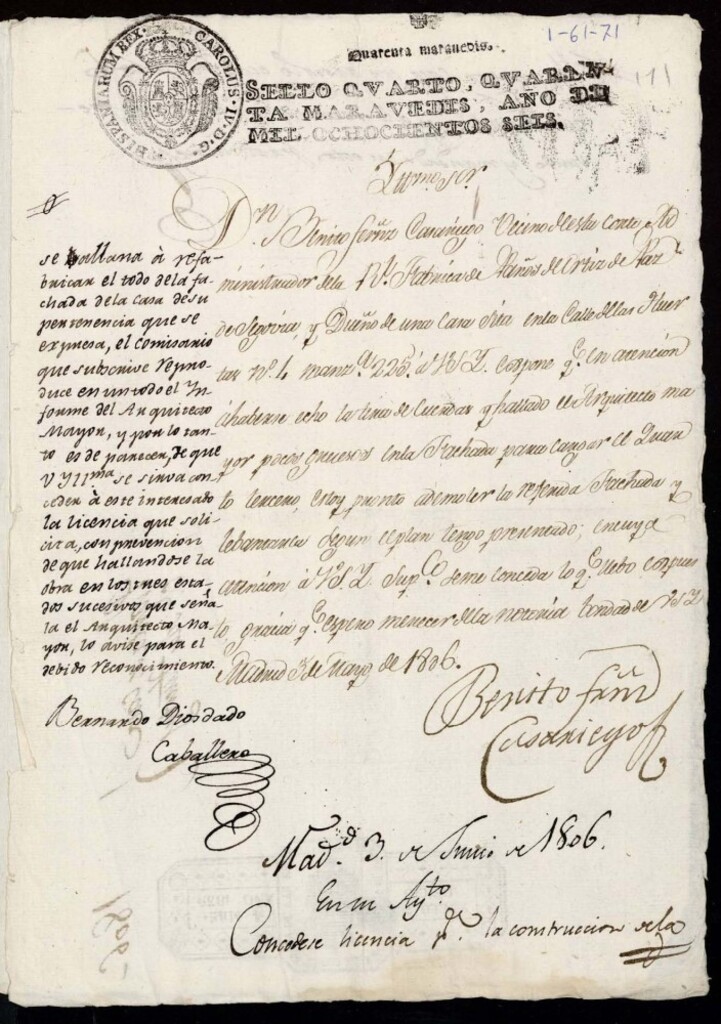 1-61-71
HISPANIARUM REX. CAROLUS IV D.G.
Quarenta maravedis.
SELLO QVARTO, QVAREN-
TA MARAVEDIS, AÑO DE
MIL OCHOCIENTOS SEIS.
Yllmo. Sor.
Dn. Benito Fernz Casariego Vecino de esta Corte, Ad
ministrador de la Rl. Fabrica de Paños de Ortiz de Paz
de Segovia, y Dueño de una Casa Sita en la Calle de las Huer
tas nº. 1, manzª. 225. á V.S.Y. expone qe. en atencion
á haberse echo la tira de Cuerdas y hallado el Arquitecto ma
yor pocos gruesos en la Fachada para cargar el Quar
to tercero, estoy pronto a demoler la referida Fachada y
lebantarla segun el plan tengo presentado; en cuya
atencion á V.S.Y. Supco. se me conceda lo qe. llebo expues
to, gracia qe. espero merecer de la notoria bondad de V.S.Y.
Madrid 3 de Mayo de 1806.
Benito Frnz
Casariego
se allana à refa-
bricar el todo de la fa-
chada de la casa de su
pertenencia que se
expresa, el comisario
que subscrive repro-
duce en un todo el In
forme del Arquitecto
Mayor, y por lo tan-
to es de parecer, de que
V Yllma se sirva con
ceder à este interesado
la licencia que soli-
cita, con prevencion
de que hallandose la
obra en los tres esta-
dos sucesivos que seña-
la el Arquitecto Ma-
yor, lo avise para el
debido reconocimiento.
Bernardo Diosdado
Caballero
Madd. 3. de Junio de 1806.
En su Aytº.
Concedese licencia pª. la construccion de la